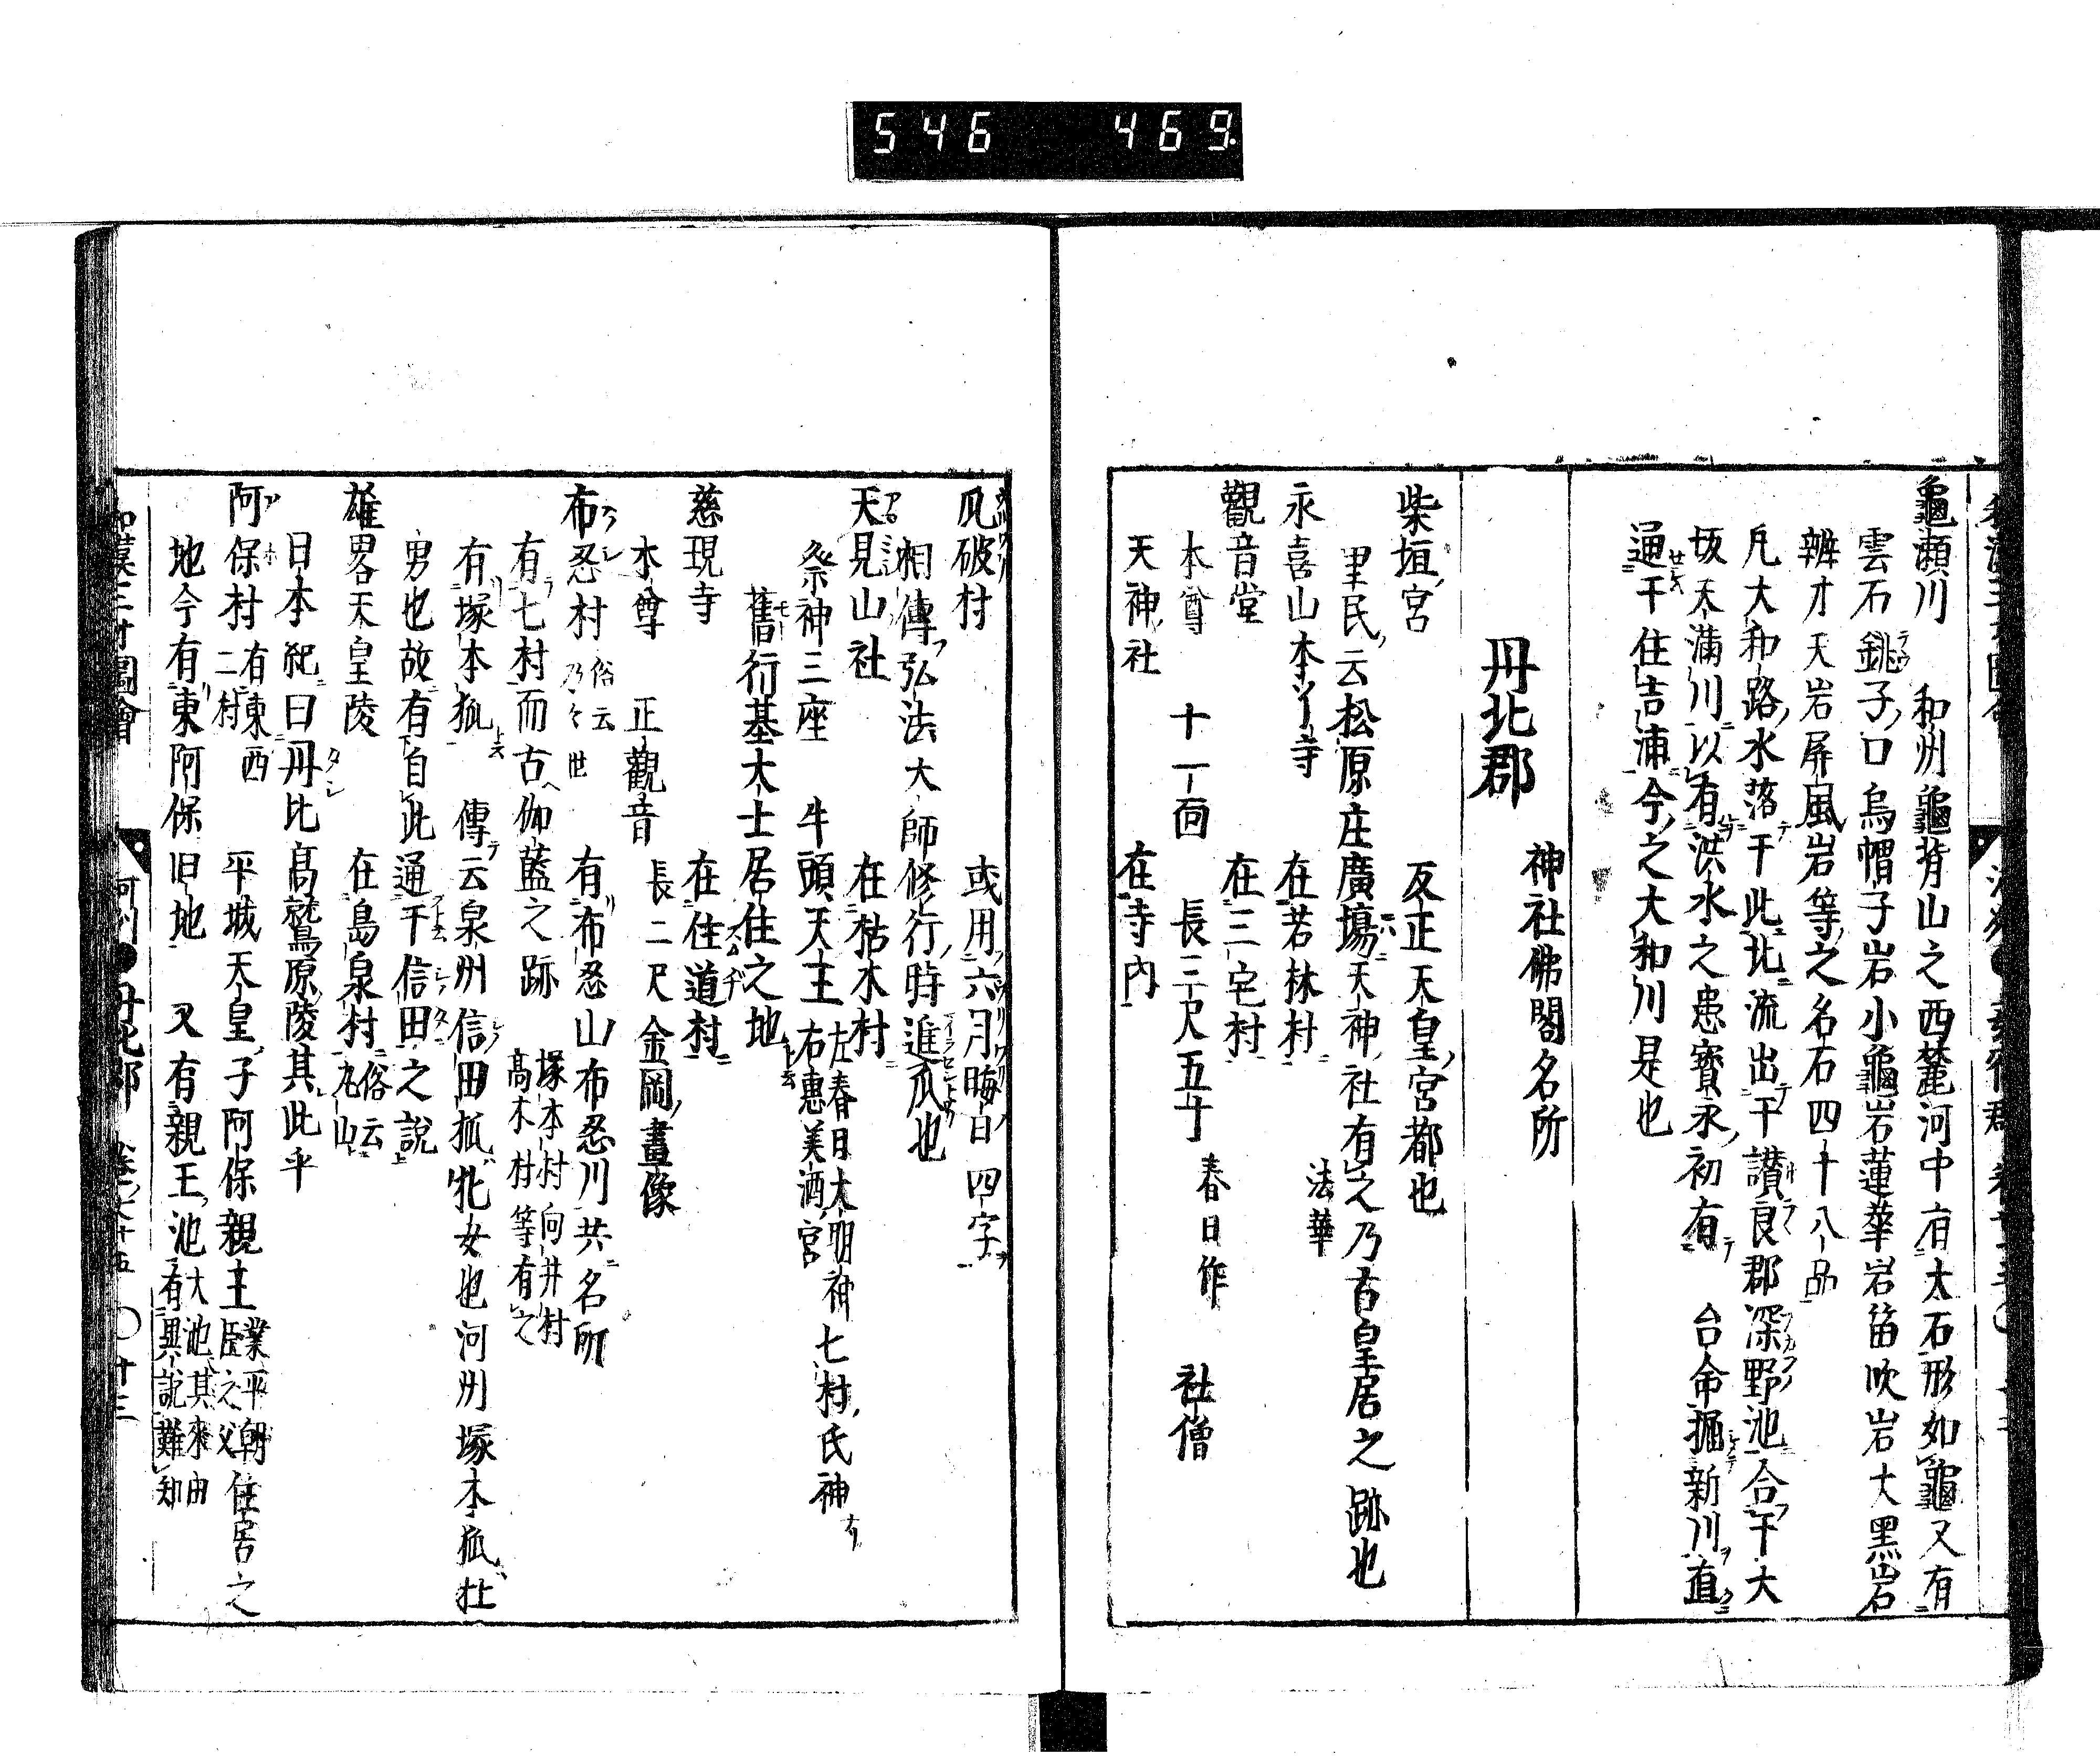 546 469.
龜瀬川 和州龜背山之西麓河中有大石形如龜又有
雲石銚子口烏帽子岩小龜岩蓮華岩笛吹岩大黒岩
辨才天岩屏風岩等之名石四十八品
凡大和路水落于此北流出于讃良郡深野池合于大
坂天満川以有洪水之患寳永初有 台命掘新川直
通于住吉浦今之大和川是也
丹北郡 神社佛閣名所
柴垣宮 反正天皇宮都也
里民云松原庄廣場天神社有之乃昔皇居之跡也
永喜山本 寺 在若林村 法華
觀音堂 在三宅村
本尊 十一面 長三尺五寸 春日作 社僧
天神社 在寺内
瓜破村 或用六月晦日四字
相傳弘法大師修行時進瓜也
天見山社 在枯木村
祭神三座 牛頭天王 左春日大明神 右惠美酒宮 七村氏神
舊行基大士居住之地
慈現寺 在住道村
本尊 正觀音 長二尺 金岡畫像
布忍村 俗云乃々世 有布忍山布忍川共名所
有七村而古伽藍之跡 塚本村向井村 高木村等有之
有塚本狐 傳云泉州信田狐牝女也河州塚本狐牡
男也故有自此通于信田之説
雄畧天皇陵 在島泉村 俗云丸山
日本紀曰丹比高鷲原陵其此乎
阿保村 有東西二村 平城天皇子阿保親王 業平朝臣之父 住居之
地今有東阿保旧地 又有親王池 大池其來由有異説難知
和漢三才圖會 河州 丹北郡 卷之七十五 〇十三